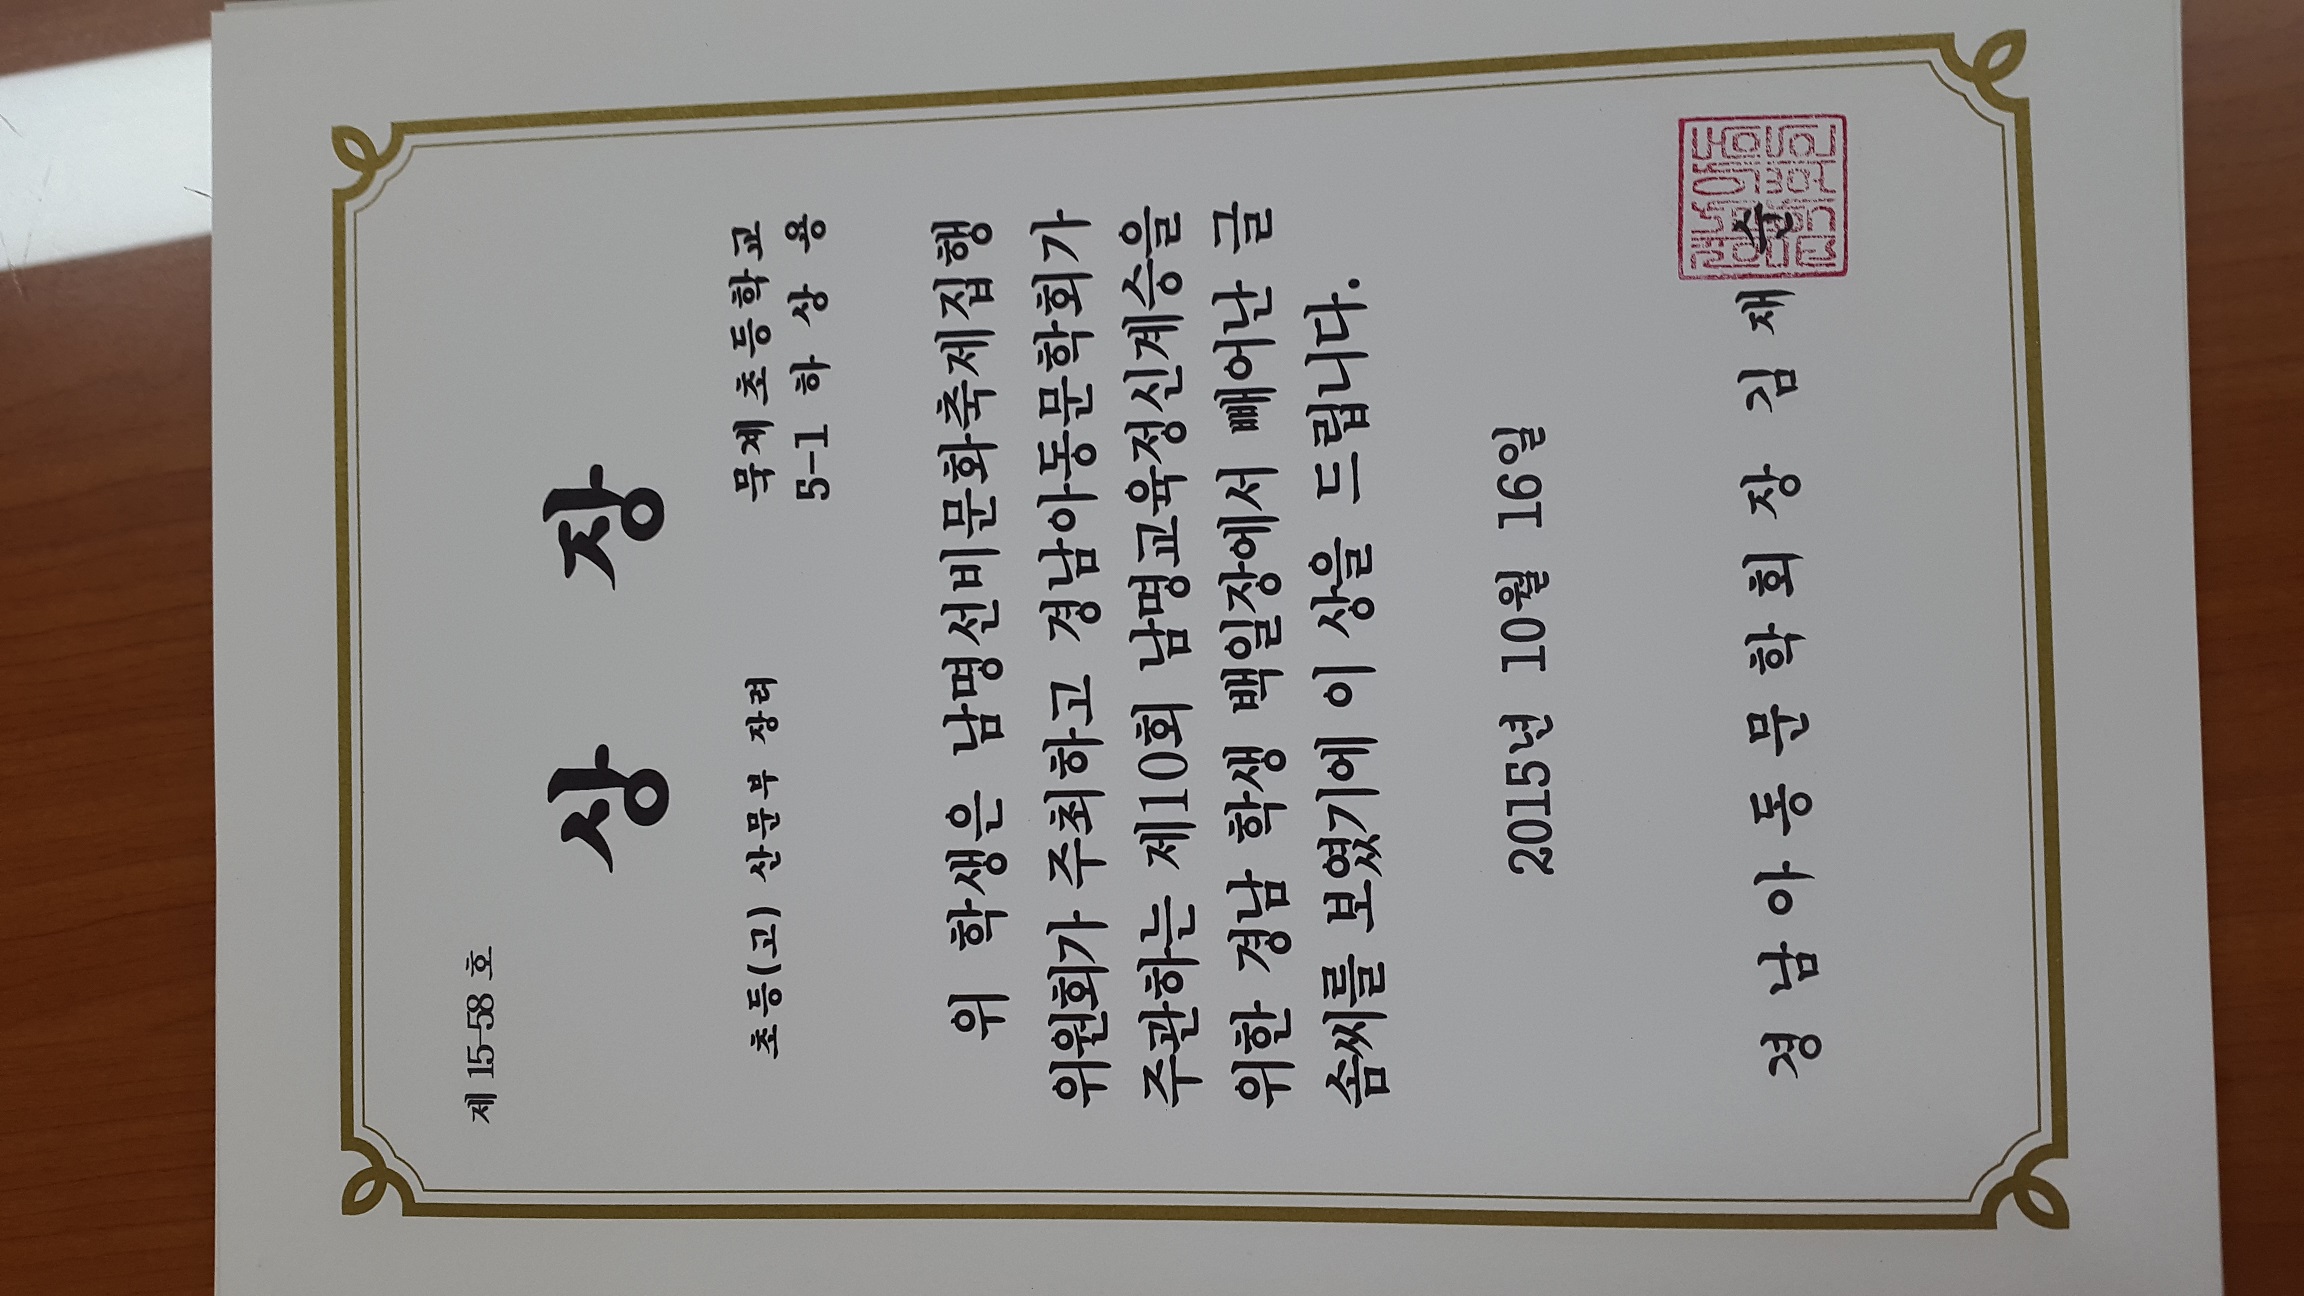 제 15-58 호
상 장
초등(고) 산문부 장려
묵계초등학교
5-1 하 상 용
위 학생은 남명선비문화축제집행
위원회가 주최하고 경남아동문학회가
주관하는 제10회 남명교육정신계승을
위한 경남 학생 백일장에서 빼어난 글
솜씨를 보였기에 이 상을 드립니다.
2015년 10월 16일
경남아동문학회장 김 재 순